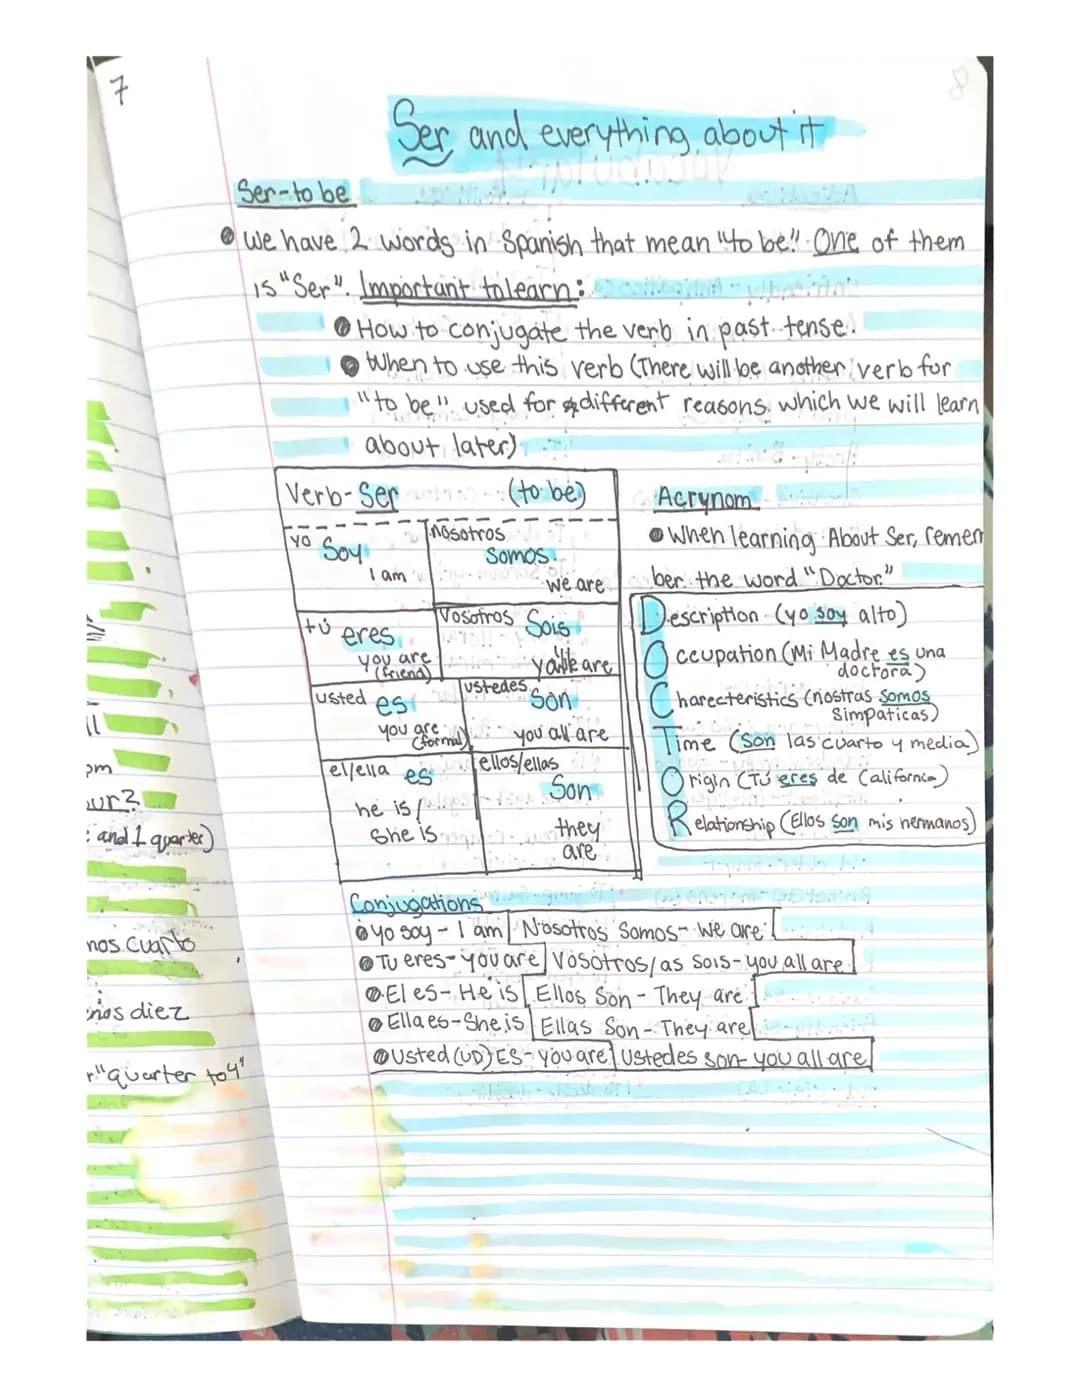 7
8
Ser and everything about it
Ser-to be
we have 2 words in Spanish that mean "to be". One of them
is "Ser". Important to learn:
How to conjugate the verb in past tense.
When to use this verb (There will be another verb for
"to be" used for different reasons. which we will learn
about later)
Verb-Ser (to be)
yo Soy
I am
nosotros
somos
we are
tú eres
you are
(friend)
Vosotros Sois
yall are
usted es
you are
(formal)
ustedes
Son
you all are
el/ella es
he is/
she is
ellos/ellas
Son
they
are
Acrynom
When learning About Ser, remem
ber the word "Doctor."
Description (yo soy alto)
Occupation (Mi Madre es una
doctora)
Charecteristics (nostras somos
Simpaticas)
Time (son las cuarto y media)
Origin (Tú eres de California)
Relationship (Ellos son mis hermanos)
Conjugations
yo soy - I am Nosotros Somos - we are
Tu eres - you are Vosotros/as sois - you all are
El es - He is Ellos Son - They are
Ella es - She is Ellas Son - They are
Usted (UD) ES - you are Ustedes son - you all are
om
ur?
and 1 quarter)
nos cuarto
nos diez
"quarter to 4"